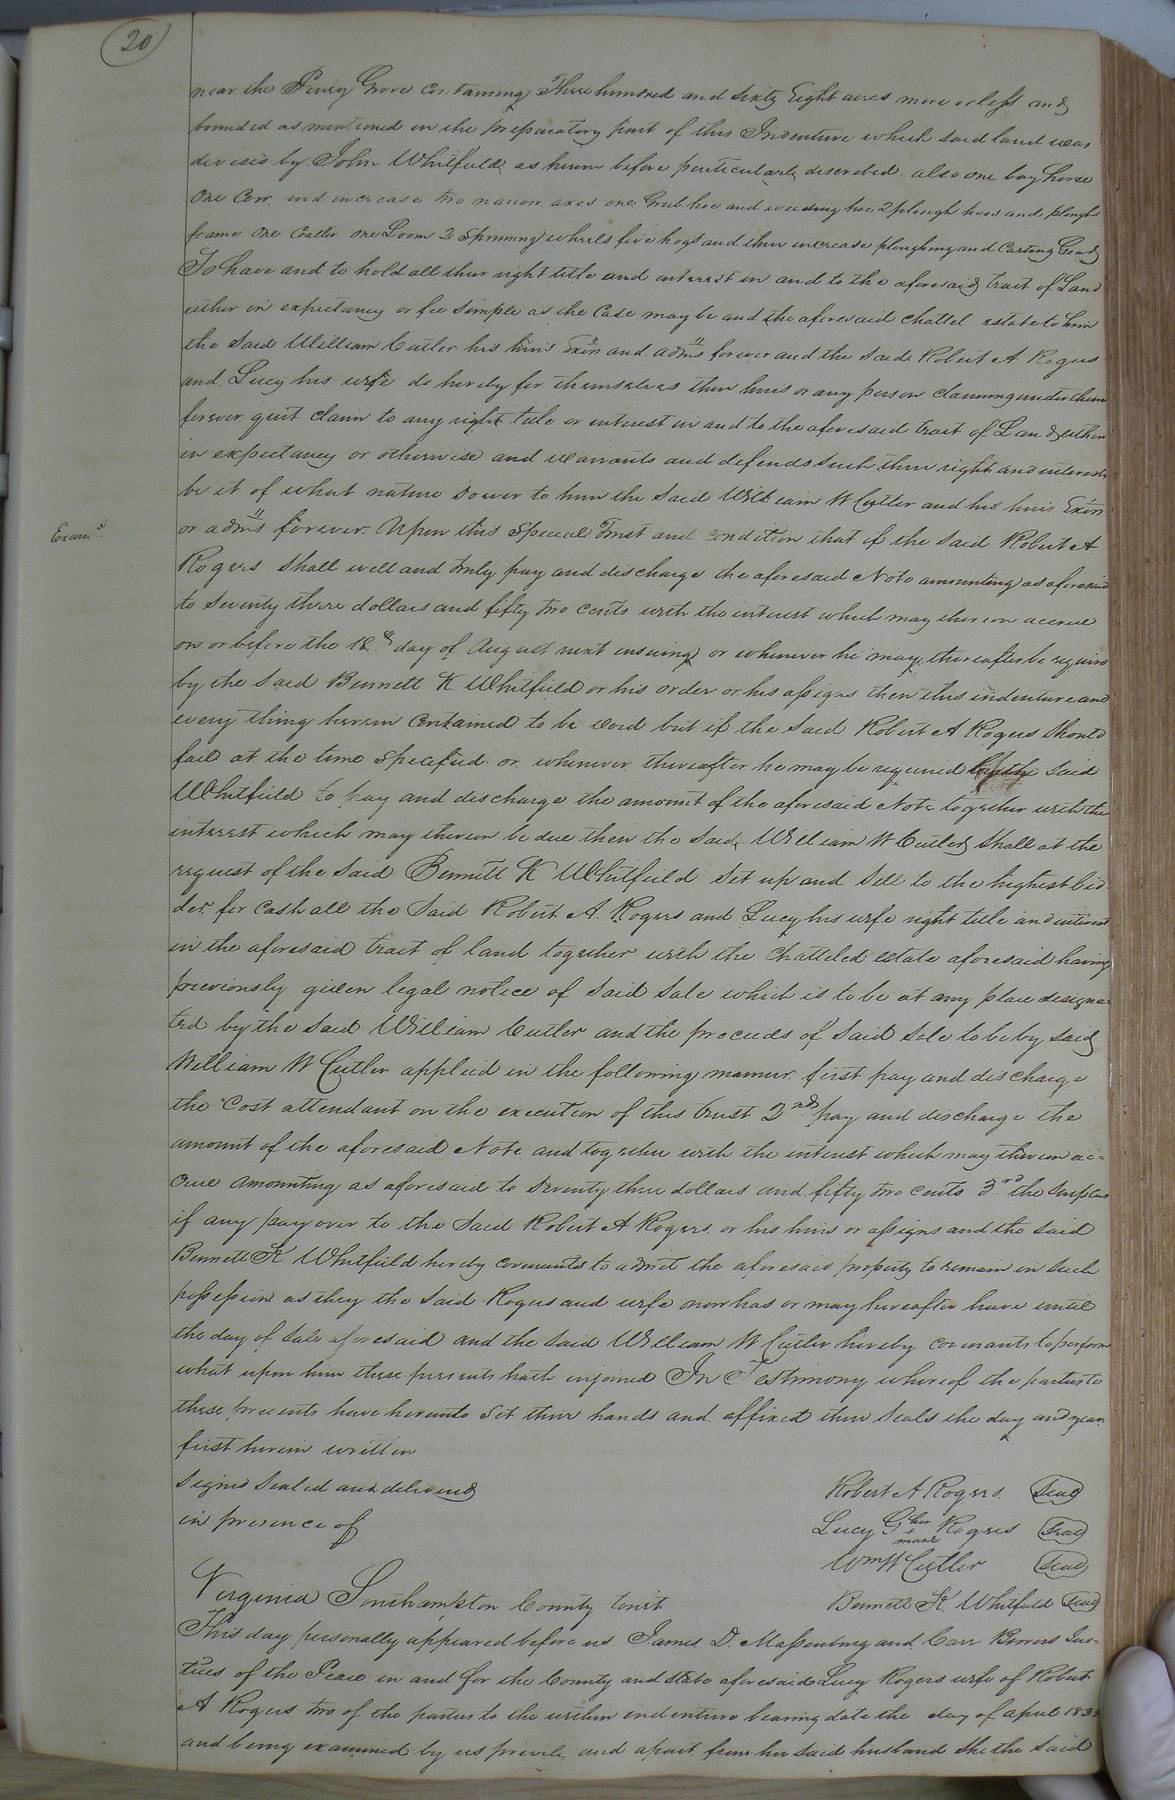 20
near the Piney Grove Containing Three hundred and Sixty Eight acres more or less and
bounded as mentioned in the preparatory part of this Indenture which said land was
devised by John Whitfield as herein before particularly described. also one bay horse
One Cow and increase two narrow axes one Grub hoe and weeding hoe 2 plough hoes and plough
frame One Coalter One Loom 2 Spinning wheels five hogs and their increase ploughing and Carting Gear
To have and to hold all their right title and interest in and to the aforesaid tract of Land
either in expectancy or fee simple as the Case may be and the aforesaid chattel estate to him
the Said William Cutler his heirs Exors and adms forever and the Said Robert A Rogers
and Lucy his wife do hereby for themselves their heirs or any person claiming under them
forever quit claim to any right title or interest in and to the aforesaid tract of Land either
in expectancy or otherwise and warrants and defends such their right and interests
be it of what nature Soever to him the Said William W Cutler and his heirs Exors
or adms forever. Upon this Special Trust and Condition that if the Said Robert A
Examd
Rogers Shall well and truly pay and discharge the aforesaid Note amounting as aforesaid
to Seventy three dollars and fifty two cents with the interest which may thereon accrue
on or before the 18th day of August next ensuing or whenever he may thereafter be required
by the Said Bennett K Whitfield or his order or his assigns then this indenture and
every thing herein Contained to be void but if the Said Robert A Rogers Should
fail at the time Specified or whenever thereafter he may be required by the Said
Whitfield to pay and discharge the amount of the aforesaid Note together with the
interest which may thereon be due then the Said William W Cutler Shall at the
request of the Said Bennett K Whitfield Set up and Sell to the highest bid
der for Cash all the Said Robert A. Rogers and Lucy his wife right title and interest
in the aforesaid tract of land together with the Chatteled estate aforesaid having
previously given legal notice of Said Sale which is to be at any place designa-
ted by the Said William Cutler and the proceeds of Said Sale to be by Said
William W Cutler applied in the following manner. first pay and discharge
the Cost attendant on the execution of this trust 2nd pay and discharge the
amount of the aforesaid Note and together with the interest which may thereon ac-
crue amounting as aforesaid to Seventy three dollars and fifty two cents 3rd the Surplus
if any pay over to the Said Robert A Rogers or his heirs or assigns and the Said
Bennett K Whitfield hereby covenants to admit the aforesaid property to remain in Such
possession as they the Said Rogers and wife now has or may hereafter have until
the day of Sale aforesaid and the Said William W Cutler hereby covenants to perform
what upon him these presents hath enjoined In Testimony whereof the parties to
these presents have hereunto Set their hands and affixed their Seals the day and year
first herein written
Signed Sealed and delivered
in presence of
Robert A Rogers Seal
Lucy G her + mark Rogers Seal
Wm W Cutler Seal
Bennett K. Whitfield Seal
Virginia Southampton County towit
This day personally appeared before us James D. Massenburg and Carr Bowers Jus-
tices of the Peace in and for the County and State aforesaid Lucy Rogers wife of Robert
A Rogers two of the parties to the within indenture bearing date the day of April
and being examined by us privily and apart from her Said husband She the Said